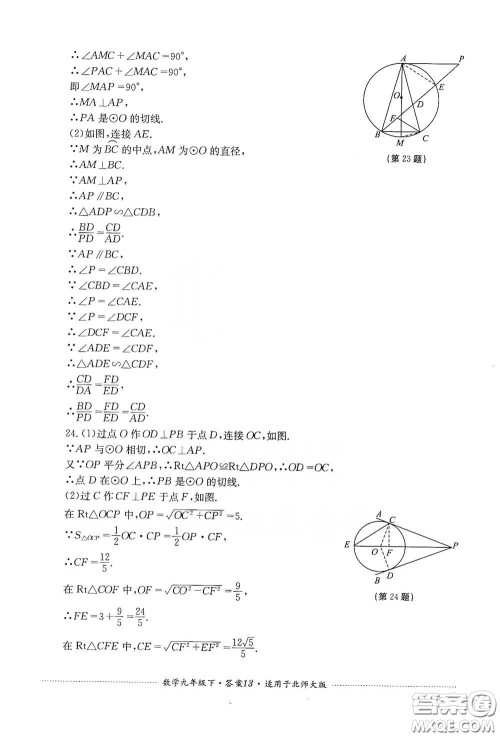 ∴∠AMC+∠MAC=90°,
∴∠PAC+∠MAC=90°,
即∠MAP=90°,
∴MA⊥AP,
∴PA是⊙O的切线.
(2)如图,连接AE.
∵M为BC的中点,AM为⊙O的直径,
∴AM⊥BC.
∵AM⊥AP,
∴AP∥BC,
∴△ADP∽△CDB,
∴BD/PD=CD/AD.
∵AP∥BC,
∴∠P=∠CBD.
∵∠CBD=∠CAE,
∴∠P=∠CAE.
∵∠P=∠DCF,
∴∠DCF=∠CAE.
∵∠ADE=∠CDF,
∴△ADE∽△CDF,
∴CD/DA=FD/ED,
∴BD/PD=FD/ED=CD/AD.
A
P
E
O
D
F
B
M
C
(第23题)
24.(1)过点O作OD⊥PB于点D,连接OC,如图.
∵AP与⊙O相切,∴OC⊥AP.
又∵OP平分∠APB,∴Rt△APO≌Rt△DPO,∴OD=OC,
∴点D在⊙O上,∴PB是⊙O的切线.
(2)过C作CF⊥PE于点F,如图.
在Rt△OCP中,OP=√(OC²+CP²)=5.
∵S△OCP=1/2 OC·CP=1/2 OP·CF,
∴CF=12/5.
在Rt△COF中,OF=√(CO²−CF²)=9/5,
∴FE=3+9/5=24/5.
在Rt△CFE中,CE=√(CF²+EF²)=12√5/5.
A
C
E
O
F
P
B
D
(第24题)
数学九年级下·答案13·适用于北师大版